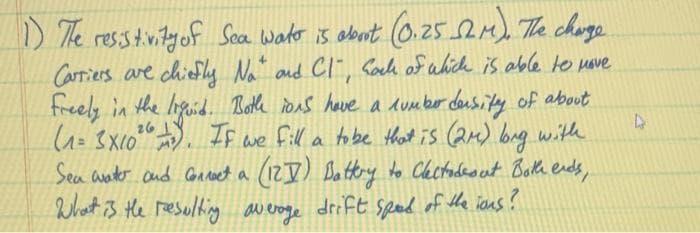 1) The resistivity of Sea water is about (0.25 ΩM). The charge
Carriers are chiefly Na⁺ and Cl⁻, Each of which is able to move
freely in the liquid. Both ions have a number density of about
(n = 3X10²⁶ 1/m³). If we fill a tobe that is (2M) long with
Sea water and Connect a (12V) Battery to Electrodes at Both ends,
What is the resulting average drift speed of the ions?